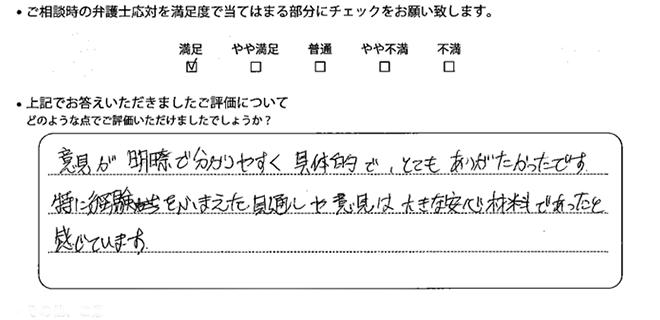 • ご相談時の弁護士応対を満足度で当てはまる部分にチェックをお願い致します。
満足 やや満足 普通 やや不満 不満
☑ □ □ □ □
• 上記でお答えいただきましたご評価について
どのような点でご評価いただけましたでしょうか？
意見が明瞭で分かりやすく具体的で、とてもありがたかったです
特に経験をふまえた見通しや意見は大きな安心材料であったと
感じています